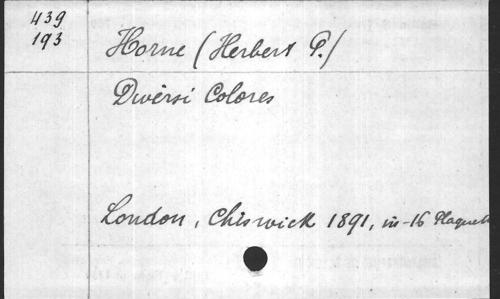 439
193
Horne (Herbert P.)
Diversi Colores
London, Chiswick 1891, in-16